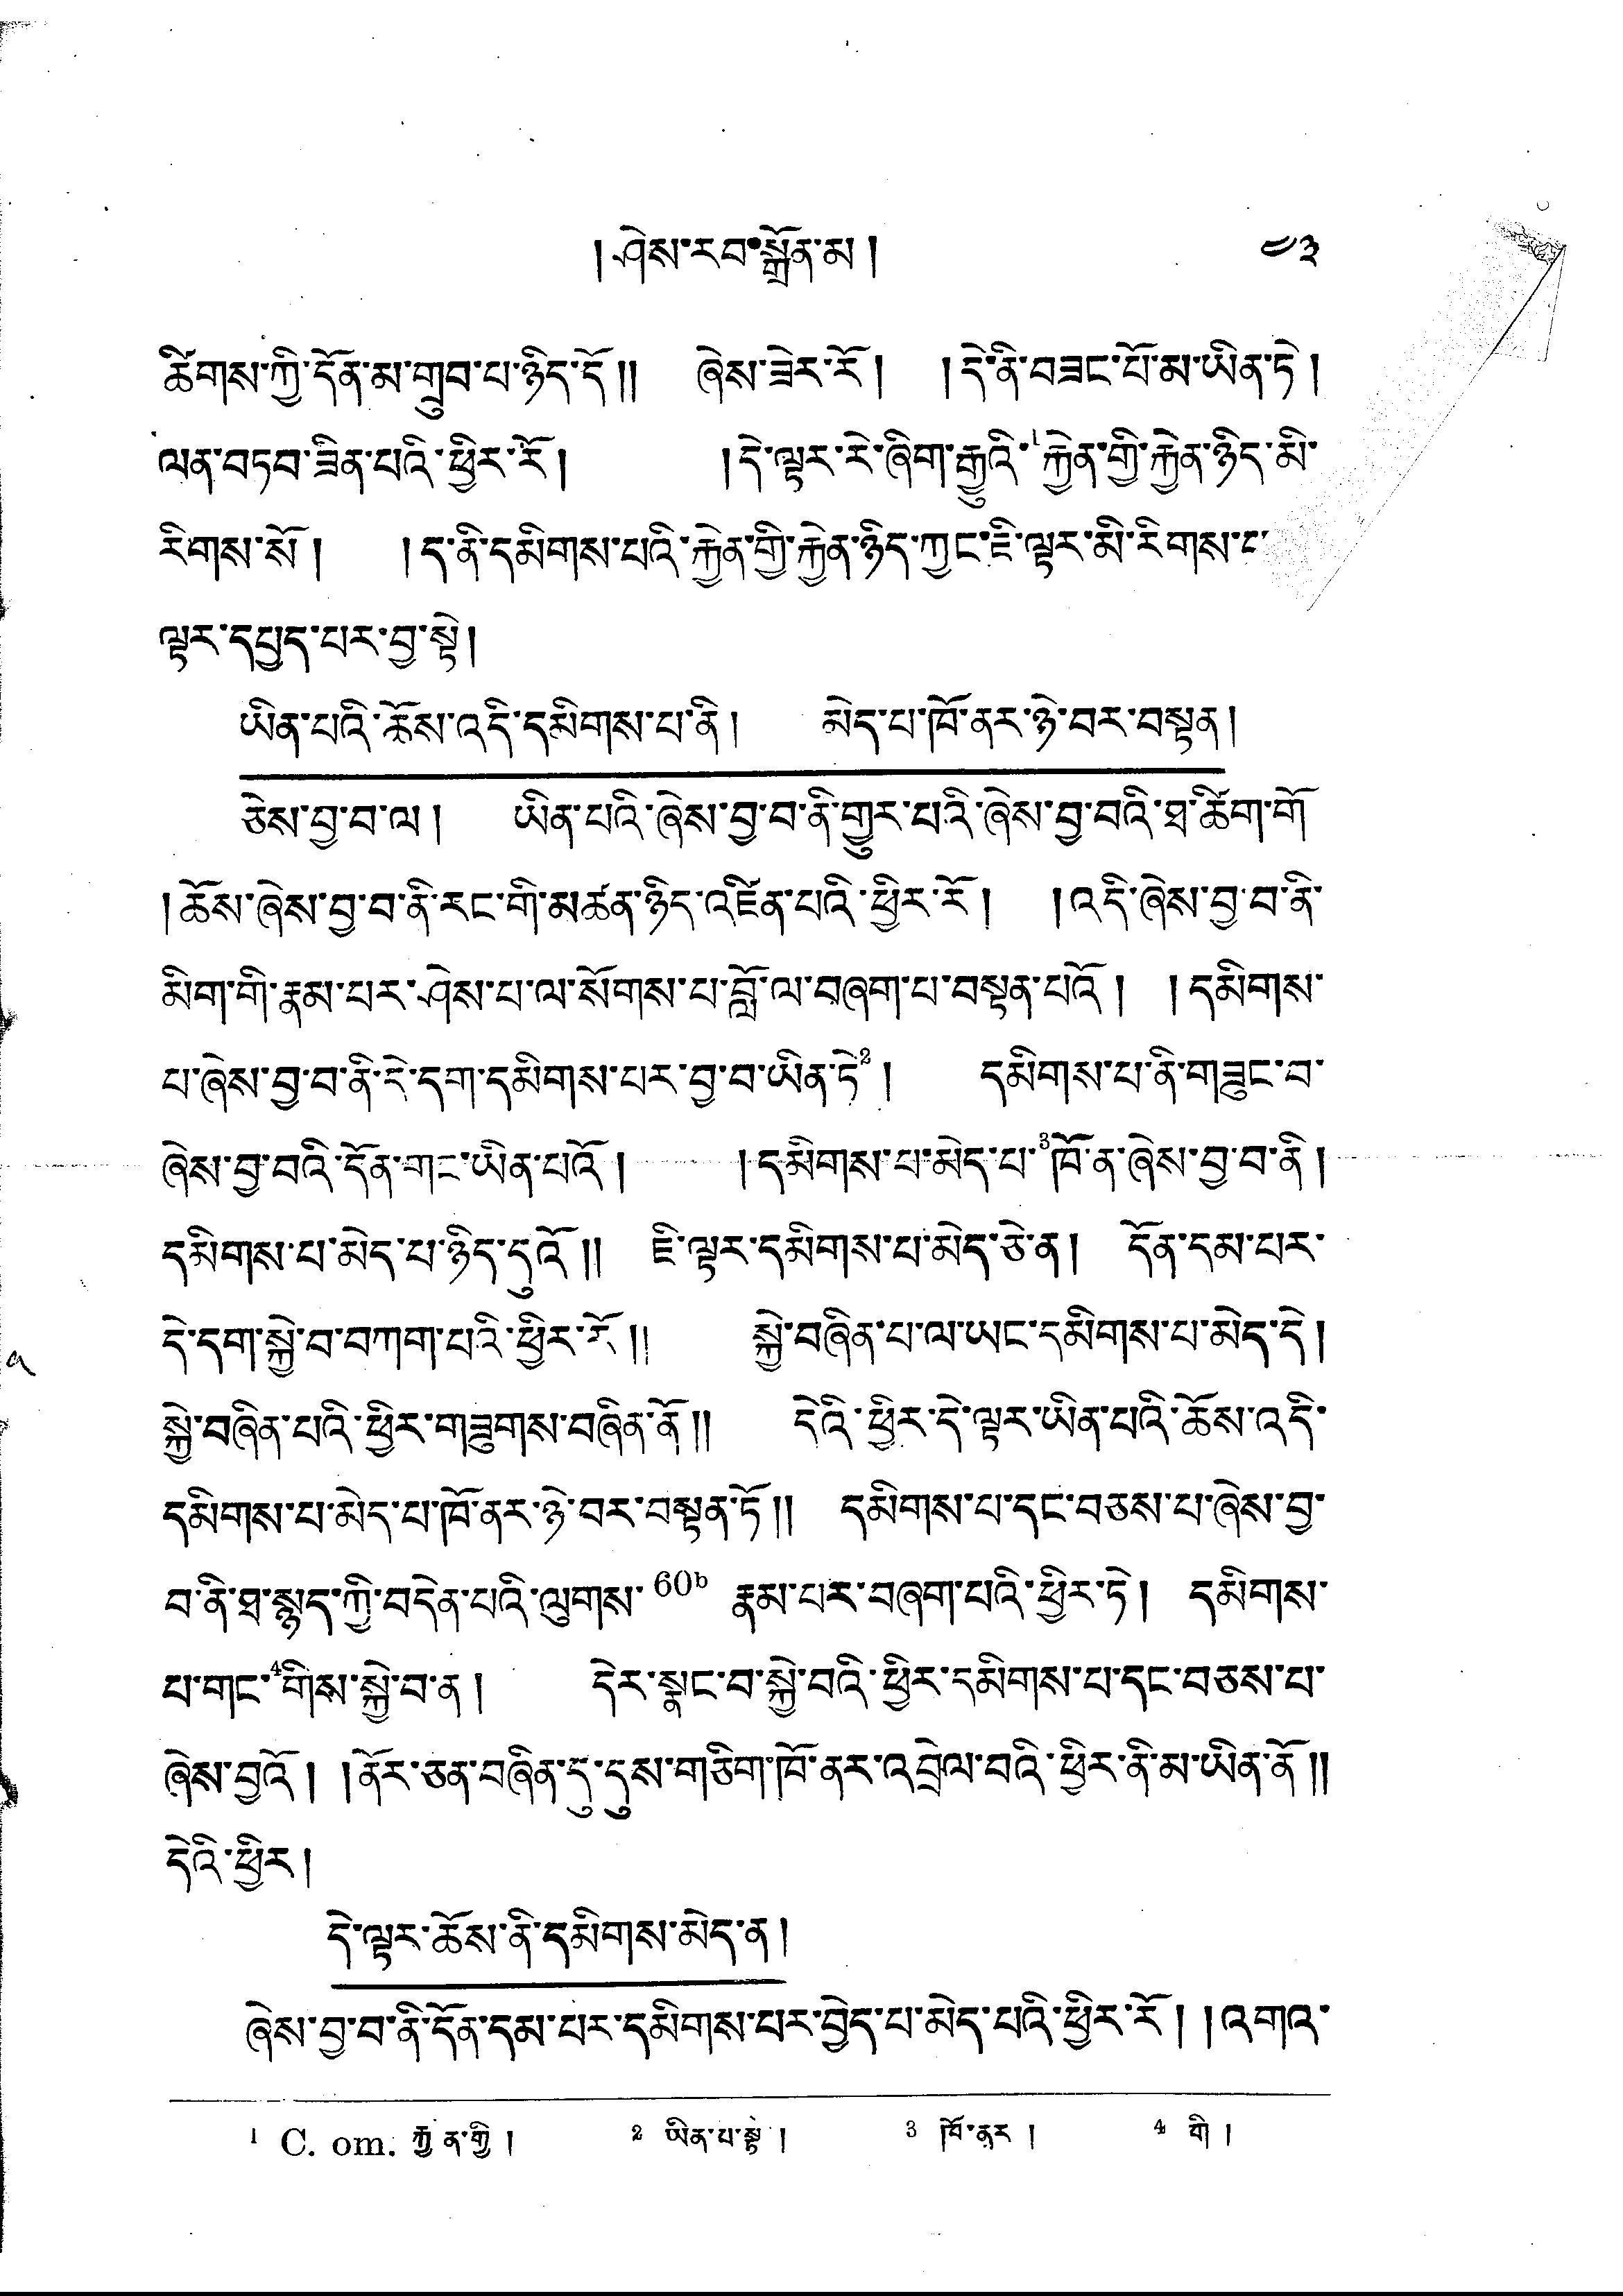 ། ཤེས་རབ་སྒྲོན་མ ། ༨༣
ཚིགས་ཀྱི་དོན་མ་གྲུབ་པ་ཉིད་དོ །། ཞེས་ཟེར་རོ ། ། དེ་ནི་བཟང་པོ་མ་ཡིན་ཏེ །
ལན་བཏབ་ཟིན་པའི་ཕྱིར་རོ ། ། དེ་ལྟར་རེ་ཞིག་རྒྱུའི་¹རྐྱེན་གྱི་རྐྱེན་ཉིད་མི་
རིགས་སོ ། ། ད་ནི་དམིགས་པའི་རྐྱེན་གྱི་རྐྱེན་ཉིད་ཀྱང་ཇི་ལྟར་མི་རིགས་པ་
ལྟར་དཔྱད་པར་བྱ་སྟེ །
ཡིན་པའི་ཆོས་འདི་དམིགས་པ་ནི ། མེད་པ་ཁོ་ནར་ཉེ་བར་བསྟན །
ཅེས་བྱ་བ་ལ ། ཡིན་པའི་ཞེས་བྱ་བ་ནི་གྱུར་པའི་ཞེས་བྱ་བའི་ཐ་ཚིག་གོ
། ཆོས་ཞེས་བྱ་བ་ནི་རང་གི་མཚན་ཉིད་འཛིན་པའི་ཕྱིར་རོ ། ། འདི་ཞེས་བྱ་བ་ནི་
མིག་གི་རྣམ་པར་ཤེས་པ་ལ་སོགས་པ་བློ་ལ་བཞག་པ་བསྟན་པའོ ། ། དམིགས་
པ་ཞེས་བྱ་བ་ནི་དེ་དག་དམིགས་པར་བྱ་བ་ཡིན་ཏེ² ། དམིགས་པ་ནི་གཟུང་བ་
ཞེས་བྱ་བའི་དོན་གང་ཡིན་པའོ ། ། དམིགས་པ་མེད་པ་³ཁོ་ན་ཞེས་བྱ་བ་ནི །
དམིགས་པ་མེད་པ་ཉིད་དུའོ །། ཇི་ལྟར་དམིགས་པ་མེད་ཅེ་ན ། དོན་དམ་པར་
དེ་དག་སྐྱེ་བ་བཀག་པའི་ཕྱིར་རོ །། སྐྱེ་བཞིན་པ་ལ་ཡང་དམིགས་པ་མེད་དེ །
སྐྱེ་བཞིན་པའི་ཕྱིར་གཟུགས་བཞིན་ནོ །། དེའི་ཕྱིར་དེ་ལྟར་ཡིན་པའི་ཆོས་འདི་
དམིགས་པ་མེད་པ་ཁོ་ནར་ཉེ་བར་བསྟན་ཏོ །། དམིགས་པ་དང་བཅས་པ་ཞེས་བྱ་
བ་ནི་ཐ་སྙད་ཀྱི་བདེན་པའི་ལུགས་ 60ᵇ རྣམ་པར་བཞག་པའི་ཕྱིར་ཏེ ། དམིགས་
པ་གང་⁴གིས་སྐྱེ་བ་ན ། དེར་སྣང་བ་སྐྱེ་བའི་ཕྱིར་དམིགས་པ་དང་བཅས་པ་
ཞེས་བྱའོ ། ། ནོར་ཅན་བཞིན་དུ་དུས་གཅིག་ཁོ་ནར་འབྲེལ་བའི་ཕྱིར་ནི་མ་ཡིན་ནོ །།
དེའི་ཕྱིར །
དེ་ལྟར་ཆོས་ནི་དམིགས་མེད་ན །
ཞེས་བྱ་བ་ནི་དོན་དམ་པར་དམིགས་པར་བྱེད་པ་མེད་པའི་ཕྱིར་རོ ། ། འགའ་
¹ C. om. རྐྱེན་གྱི ། ² ཡིན་པ་སྟེ ། ³ ཁོ་ནར ། ⁴ གི །